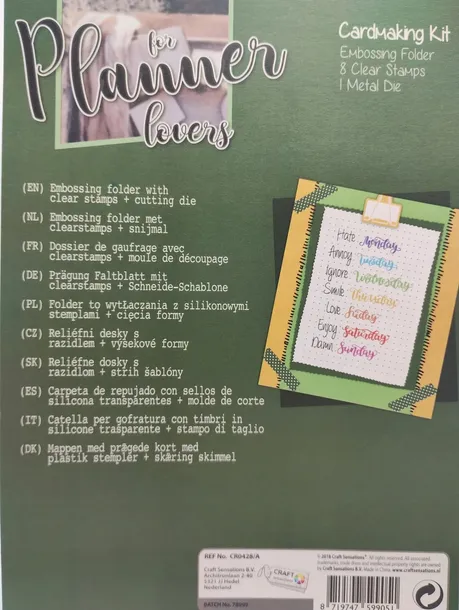 for
Planner
lovers
Cardmaking Kit
Embossing Folder
8 Clear Stamps
1 Metal Die
(EN) Embossing folder with
clear stamps + cutting die
(NL) Embossing folder met
clearstamps + snijmal
(FR) Dossier de gaufrage avec
clearstamps + moule de découpage
(DE) Prägung Faltblatt mit
clearstamps + Schneide-Schablone
(PL) Folder to wytłaczania z silikonowymi
stemplami + cięcia formy
(CZ) Reliéfní desky s
razidlem + výsekové formy
(SK) Reliéfne dosky s
razidlom + strih šablóny
(ES) Carpeta de repujado con sellos de
silicona transparentes + molde de corte
(IT) Catella per gofratura con timbri in
silicone trasparente + stampo di taglio
(DK) Mappen med prægede kort med
plastik stempler + skæring skimmel
Hate Monday
Annoy Tuesday
Ignore Wednesday
Smile Thursday
Love Friday
Enjoy Saturday
Damn Sunday
REF No. CR0428/A
Craft Sensations B.V.
5321 JJ Hedel
Nederland
CRAFT
Sensations
© 2018 Craft Sensations®. All associated
Craft Sensations B.V. Made in China. www.craftsensations.nl
8 719747 599051